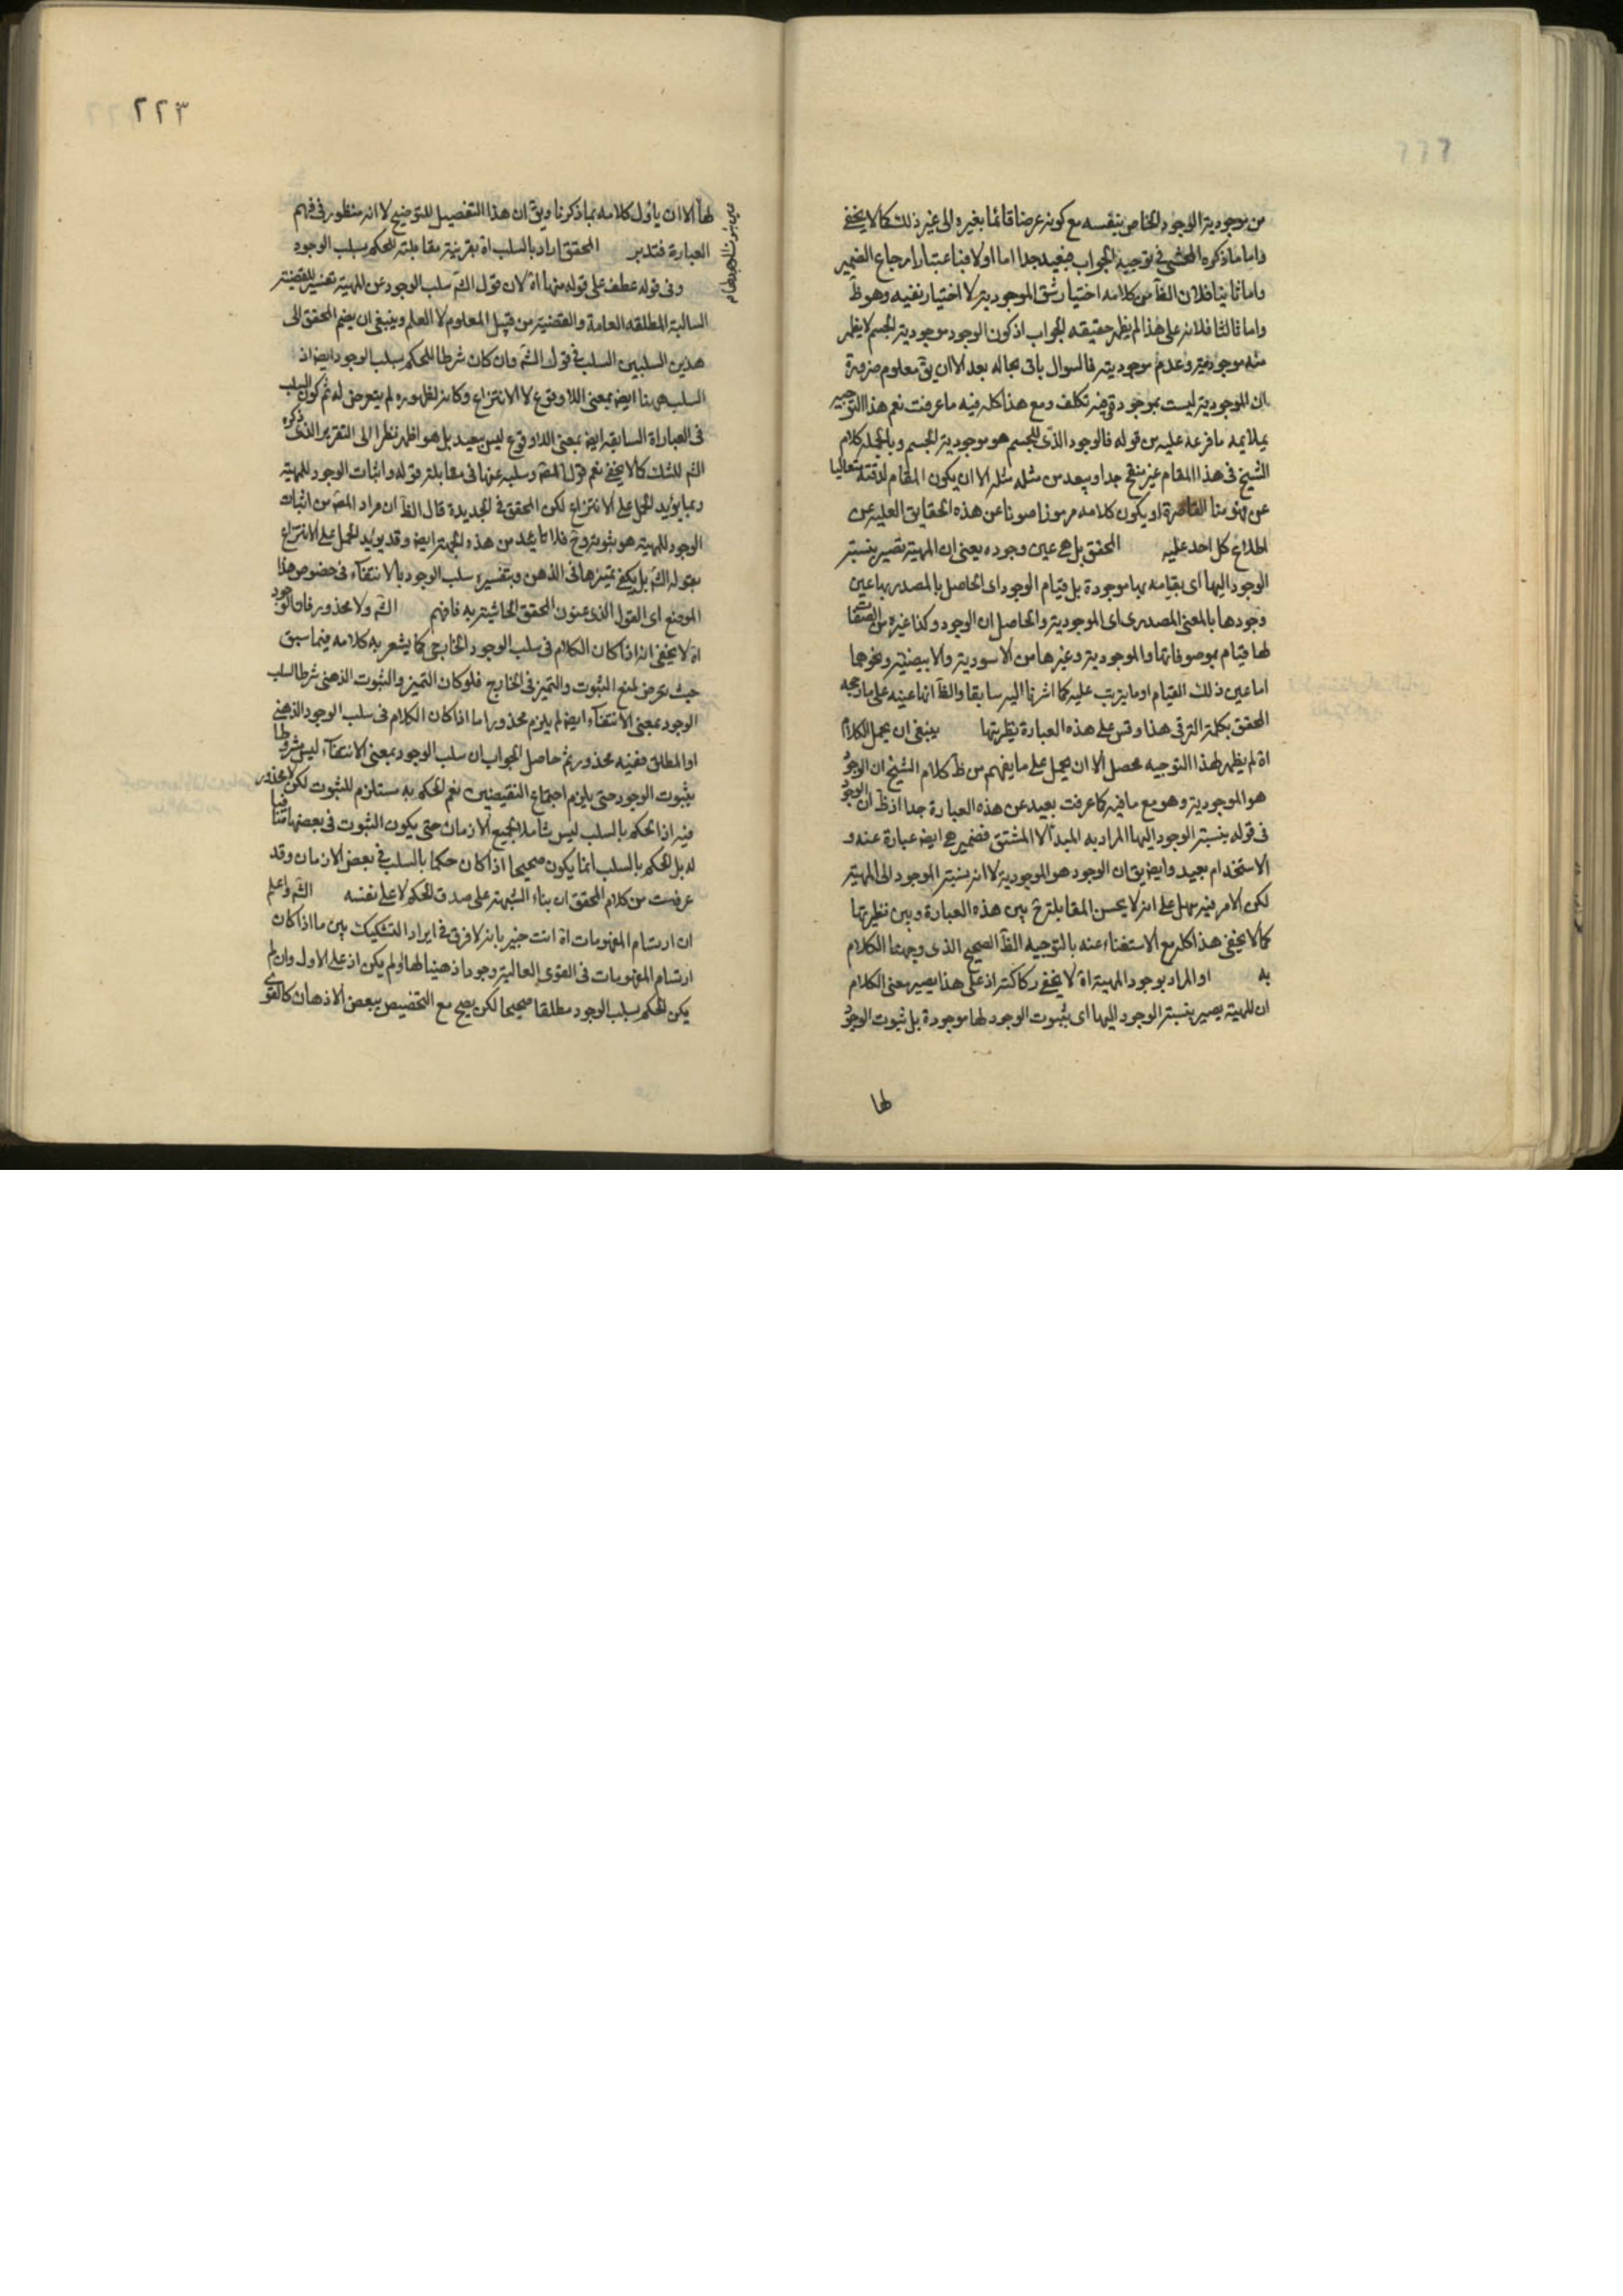 من موجودية الوجود الخاص بنفسه مع كونه عرضا قائما بغيره الى غير ذلك كما لا يخفى
واما ما ذكره المحشى فى توجيه الجواب فبعيد جدا اما اولا فبناء عتبار ارجاع الضمير
واما ثانيا فلان الظآ من كلامه اختيار شق الموجودية لا اختيار نفيه وهو ظ
واما ثالثا فلانه على هذا لم يظهر حقيقه الجواب اذ كون الوجود موجودية الجسم لا يظهر
منه موجوديته وعدم موجوديته فالسوال باق بحاله بعد الا ان يق معلوم ضرورة
ان الموجودية ليست بموجودة وفيه تكلف ومع هذا كله فيه ما عرفت نعم هذا التوجيه
يملايمه ما فرعه عليه من قوله فالوجود الذى للجسم هو موجودية الجسم وبالجمله كلام
الشيخ فى هذا المقام غير منقح جدا ويبعد من مثله مثله الا ان يكون المقام لدقته متعاليا
عن فهومنا القاصرة او يكون كلامه مرموزا صونا عن هذه الحقايق العلية عن
اطلاع كل احد عليه المحقق بل هى عين وجوده يعنى ان المهية تصير بنسبة
الوجود اليها اى بقيامه بها موجودة بل قيام الوجود اى الحاصل بالمصدر بها عين
وجودها بالمعنى المصدرى اى الموجودية والحاصل ان الوجود وكذا غيره من الصفات
لها قيام بموصوفاتها والموجودية وغيرها من الاسودية والابيضية ونحوهما
اما عين ذلك القيام او ما يترتب عليه كما اشرنا اليه سابقا والظآ انها عينه على ما رجحه
المحقق بكلمة الترقى هذا وقس على هذه العبارة نظيرتها ينبغى ان يحمل الكلام
اه لم يظهر لهذا التوجيه محصل الا ان يحمل على ما يفهم من ظ كلام الشيخ ان الوجود
هو الموجودية وهو مع ما فيه كما عرفت بعيد عن هذه العبارة جدا اذ ظ ان الوجود
فى قوله بنسبة الوجود اليها المراد به المبدأ لا المشتق فضمير هى ايض عبارة عنه و
الاستخدام بعيد وايض يق ان الوجود هو الموجودية لا انه بنسبة الوجود الى المهية
لكن الامر فيه سهل على انه لا يحسن المقابلة ح بين هذه العبارة وبين نظيرتها
كما لا يخفى هذا كله مع الاستغناء عنه بالتوجيه الظآ الصحيح الذى وجهنا الكلام
به او المراد بوجود المهية اه لا يخفى ركاكته اذ على هذا يصير معنى الكلام
ان المهية يصير بنسبة الوجود اليها اى بثبوت الوجود لها موجودة بل ثبوت الوجود
لها
٢٢٣
لها الا ان ياول كلامه بما ذكرنا ويق ان هذا التفصيل للتوضيح لا انه منظور فى فهم
العبارة فتدبر المحقق اراد بالسلب اه بقرينة مقابلته للحكم بسلب الوجود
وفى قوله عطف على قوله منها اه لان قول الشّ سلب الوجود عن المهية تفسير للقضية
السالبة المطلقه العامة والقضية من قبيل المعلوم لا العلم وينبغى ان يضم المحقق الى
هذين السلبين السلب فى قول الشّ وان كان شرطا للحكم بسلب الوجود ايض اذ
السلب ههنا ايض بمعنى اللاوقوع لا الانتزاع وكانه لظهوره لم يتعرض له ثم كون السلب
فى العباراة السابقه ايض بمعنى اللاوقوع ليس ببعيد بل هو اظهر نظرا الى التقرير الذى ذكره
الشّ للشك كما لا يخفى نعم قول المصّ وسلبه عنها فى مقابلة قوله واثبات الوجود للمهية
ربما يؤيد الحمل على الانتزاع لكن المحقق فى الجديدة قال الظآ ان مراد المصّ من اثبات
الوجود للمهية هو ثبوته وح فلا تائيد من هذه الجهة ايض وقد يويد الحمل على الانتزاع
بقوله الشّ بل يكفى تميزها فى الذهن وبتفسيره سلب الوجود بالانتفاء فى خصوص هذا
الموضع اى القول الذى عنون المحقق الحاشية به فافهم الشّ ولا محذور فان الوجود
اه لا يخفى انه اذا كان الكلام فى سلب الوجود الخارجى كما يشعر به كلامه فيما سبق
حيث تعرض لمنع الثبوت والتميز فى الخارج فلو كان التميز والثبوت الذهنى شرطا لسلب
الوجود بمعنى الانتفاء ايض لم يلزم محذور اما اذا كان الكلام فى سلب الوجود الذهنى
او المطلق ففيه محذور ثم حاصل الجواب ان سلب الوجود بمعنى الانتفاء ليس مشروطا
بثبوت الوجود حتى يلزم اجتماع النقيضين نعم الحكم به مستلزم للثبوت لكن لا محذور
فيه اذ الحكم بالسلب ليس شاملا لجميع الازمان حتى يكون الثبوت فى بعضها منافيا
له بل الحكم بالسلب انما يكون صحيحا اذا كان حكما بالسلب فى بعض الازمان وقد
عرفت من كلام المحقق ان بناء الشبهة على صدق الحكم لا على نفسه الشّ واعلم
ان ارتسام المفهومات اه انت خبير بانه لا فرق فى ايراد التشكيك بين ما اذا كان
ارتسام المفهومات فى القوى العالية وجودا ذهنيا لها او لم يكن اذ على الاول وان لم
يكن الحكم بسلب الوجود مطلقا صحيحا لكن يصح مع التخصيص ببعض الاذهان كالقوى